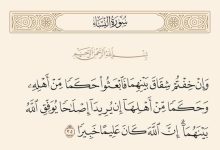 سورة النساء
بسم الله الرحمن الرحيم
وَإِنْ خِفْتُمْ شِقَاقَ بَيْنِهِمَا فَابْعَثُوا حَكَمًا مِّنْ أَهْلِهِ
وَحَكَمًا مِّنْ أَهْلِهَا إِن يُرِيدَا إِصْلَاحًا يُوَفِّقِ اللَّهُ
بَيْنَهُمَا إِنَّ اللَّهَ كَانَ عَلِيمًا خَبِيرًا ٣٥